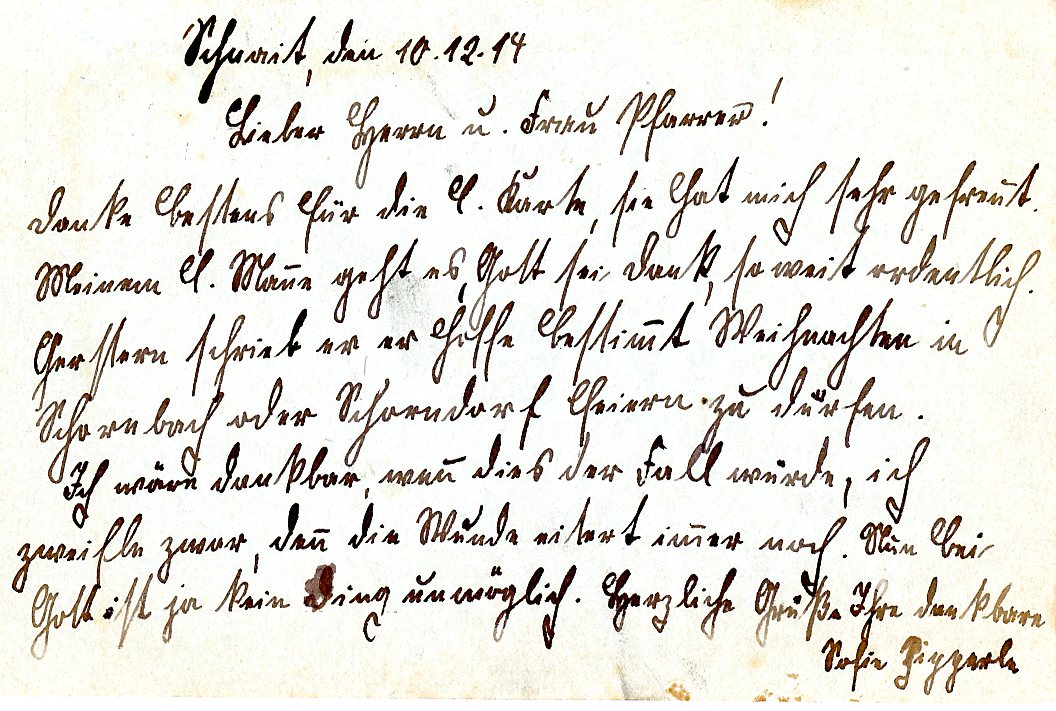 Schnait, den 10.12.14
Lieber Herrn u. Frau Pfarrer!
Danke bestens für die l. Karte, sie hat mich sehr gefreut.
Meinem l. Mañe geht es, Gott sei Dank, so weit ordentlich.
Gerstern schrieb er er hoffe bestim̄t Weihnachten in
Schornbach oder Schorndorf feiern zu dürfen.
Ich wäre dankbar, weñ dies der Fall würde, ich
zweifle zwar, deñ die Wunde eitert im̄er noch. Nun bei
Gott ist ja kein Ding unmöglich. Herzliche Grüße Ihre dankbare
Sofie Zipperle